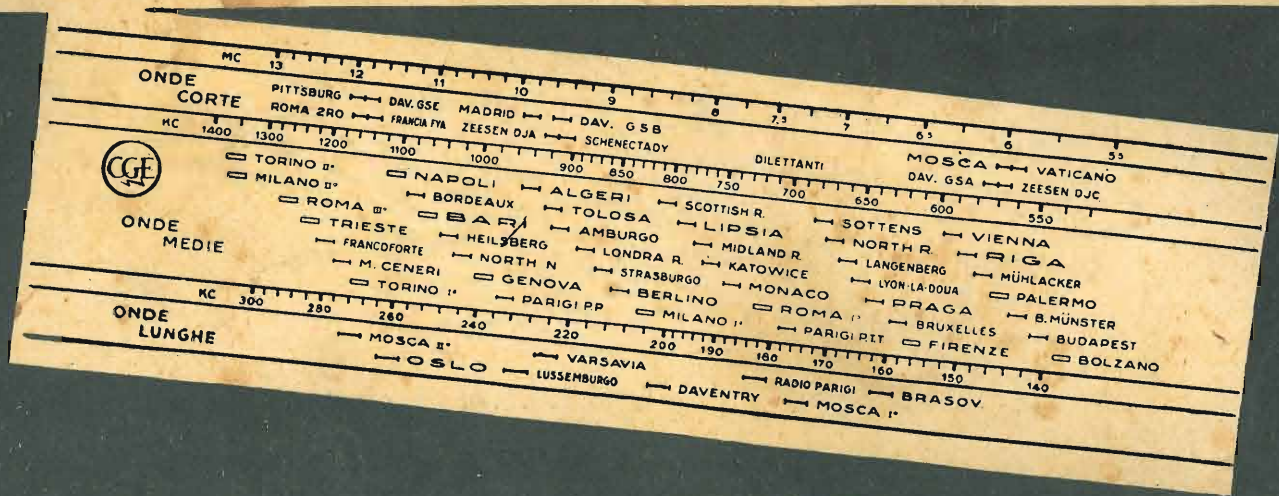 MC 13 12 11 10 9 8 7.5 7 6.5 6 5.5
ONDE CORTE
PITTSBURG DAV. GSE MADRID DAV. GSB DILETTANTI MOSCA VATICANO
ROMA 2RO FRANCIA FYA ZEESEN DJA SCHENECTADY DAV. GSA ZEESEN DJC
KC 1400 1300 1200 1100 1000 900 850 800 750 700 650 600 550
CGE
ONDE MEDIE
TORINO II° NAPOLI ALGERI SCOTTISH R. SOTTENS VIENNA
MILANO II° BORDEAUX TOLOSA LIPSIA NORTH R. RIGA
ROMA III° BARI AMBURGO MIDLAND R. LANGENBERG MÜHLACKER
TRIESTE HEILSBERG LONDRA R. KATOWICE LYON-LA-DOUA PALERMO
FRANCOFORTE NORTH N STRASBURGO MONACO PRAGA B.MÜNSTER
M. CENERI GENOVA BERLINO ROMA I° BRUXELLES BUDAPEST
TORINO I° PARIGI P.P MILANO I° PARIGI P.T.T FIRENZE BOLZANO
KC 300 280 260 240 220 200 190 180 170 160 150 140
ONDE LUNGHE
MOSCA II° VARSAVIA RADIO PARIGI BRASOV.
OSLO LUSSEMBURGO DAVENTRY MOSCA I°